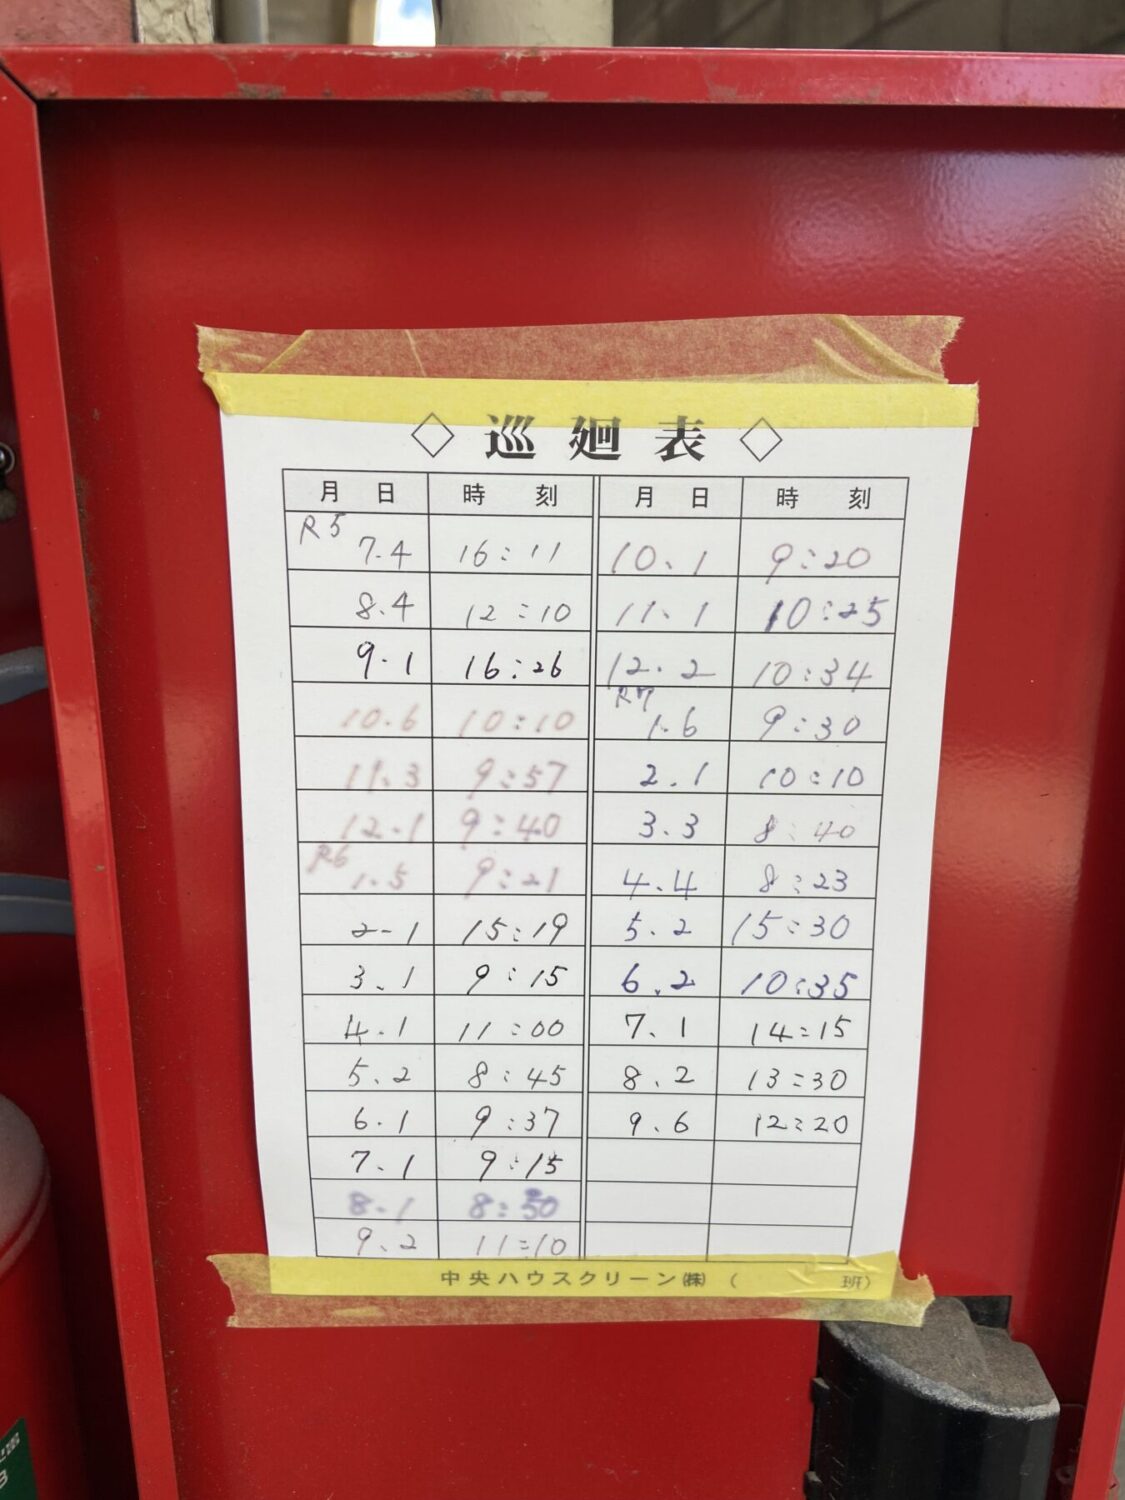 ◇ 巡廻表 ◇
月 日 時 刻
R5 7.4 16:11
8.4 12:10
9.1 16:26
10.6 10:10
11.3 9:57
12.1 9:40
R6 1.5 9:21
2-1 15:19
3.1 9:15
4.1 11:00
5.2 8:45
6.1 9:37
7.1 9:15
8.1 8:50
9.2 11:10
月 日 時 刻
10.1 9:20
11.1 10:25
12.2 10:34
R7 1.6 9:30
2.1 10:10
3.3 8:40
4.4 8:23
5.2 15:30
6.2 10:35
7.1 14:15
8.2 13:30
9.6 12:20
中央ハウスクリーン㈱ ( 班)